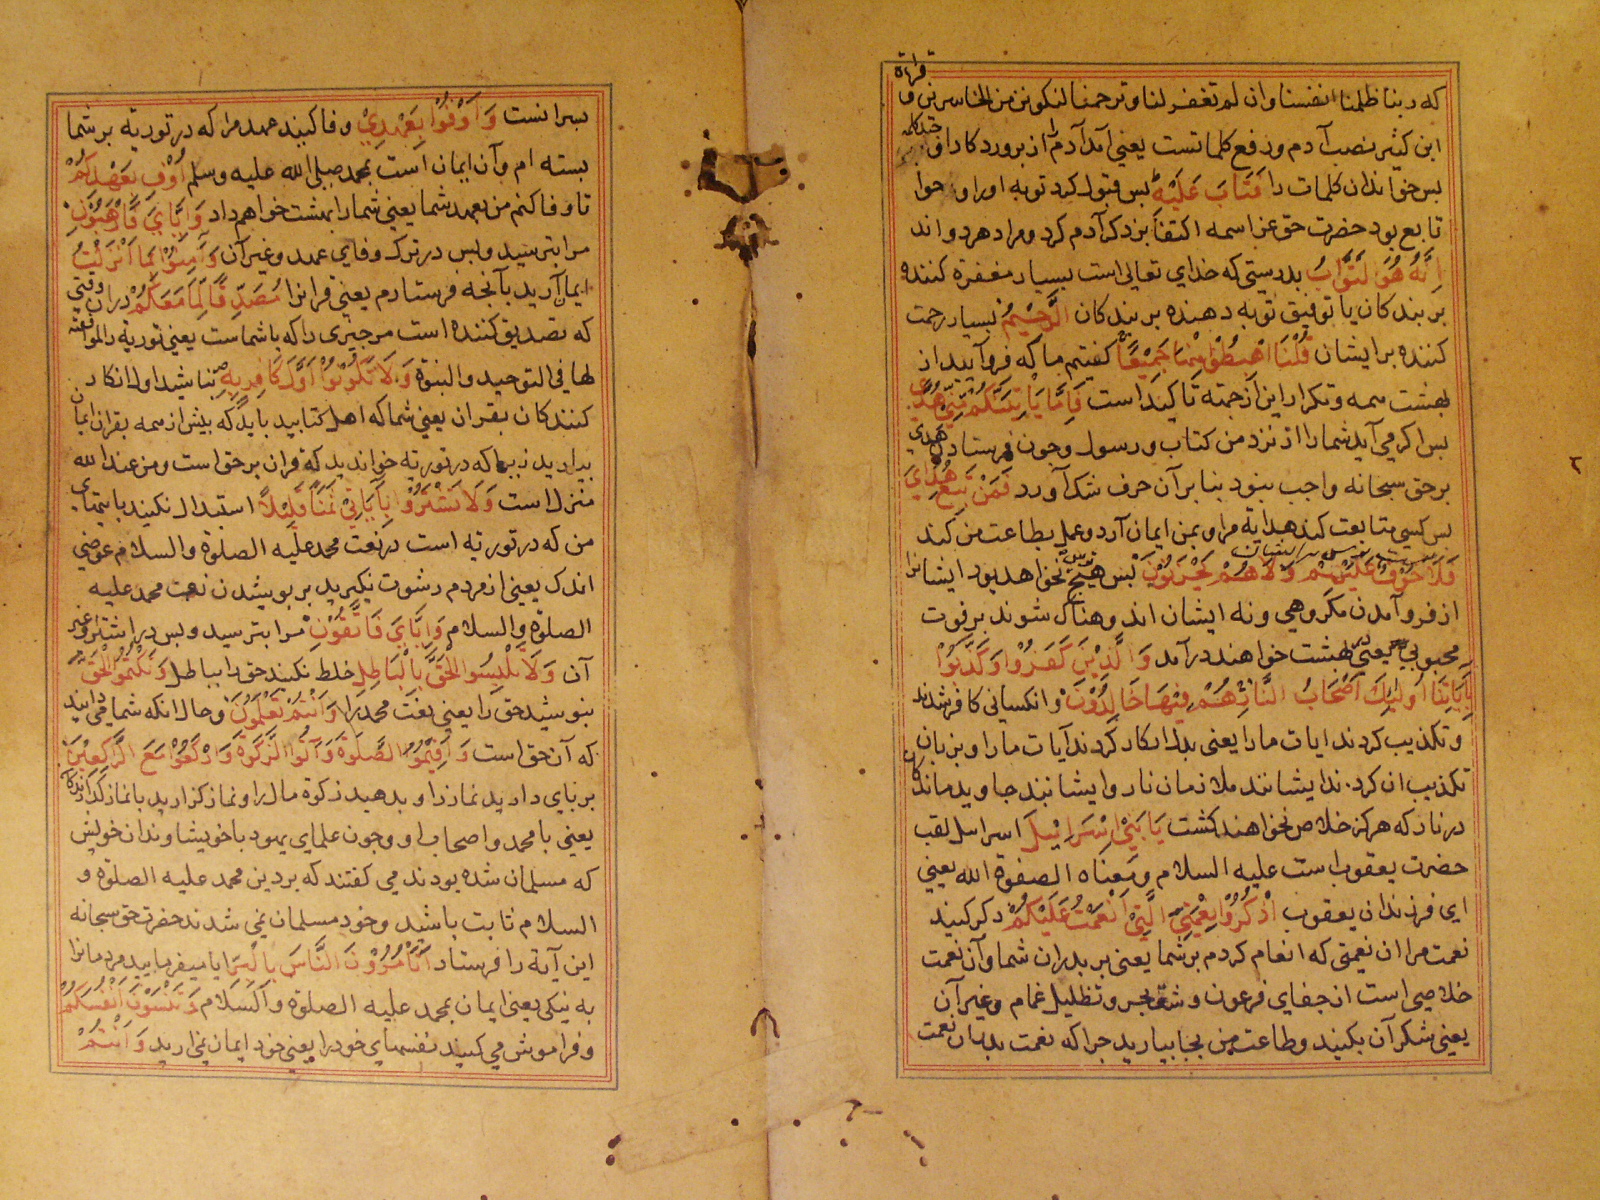 که ربنا ظلمنا انفسنا وان لم تغفر لنا وترحمنا لنکونن من الخاسرین و قراءة
ابن کثیر نصب آدم و رفع کلماتست یعنی آمد آدم را از پروردکار او
پس خواندان کلمات را فَتَابَ عَلَيْهِ پس قبول کرد توبه او را و حوا
تابع بود حضرت حق عز اسمه اکتفا بذکر آدم کرد و مراد هر دو اند
اِنَّهُ هُوَ التَّوَّابُ بدرستی که خدای تعالی است بسیار مغفرة کننده
بر بندکان یا توفیق توبه دهنده بر بندکان الرَّحِيْمُ بسیار رحمت
کننده بر ایشان قُلْنَا اهْبِطُوْا مِنْهَا جَمِيْعًا کفتیم ما که فرو آیید از
بهشت همه و تکرار این از جهة تاکید است فَاِمَّا يَاْتِيَنَّكُمْ مِّنِّيْ هُدًى
پس اکر می آید شما را از نزد من کتاب و رسول و چون فرستادن هدی
بر حق سبحانه واجب نبود بنا بر آن حرف شک آورد فَمَنْ تَبِعَ هُدَايَ
پس کسی متابعت کند هدایة مرا و بمن ایمان آرد و عمل بطاعت من کند
فَلَا خَوْفٌ عَلَيْهِمْ وَلَا هُمْ يَحْزَنُوْنَ پس هیچ نخواهد بود ایشانرا
از فرو آمدن مکروهی و نه ایشان اندوهناک شوند بر فوت
محبوبی یعنی در بهشت خواهند درآمد وَالَّذِيْنَ كَفَرُوْا وَكَذَّبُوْا
بِآيَاتِنَا اُولٰئِكَ اَصْحَابُ النَّارِ هُمْ فِيْهَا خَالِدُوْنَ و انکسانی کافر شدند
و تکذیب کردند ایات ما را یعنی بدل انکار کردند آیات ما را و بزبان
تکذیب ان کردند ایشانند ملازمان نار و ایشانند جاوید ماندکان
در نار که هرکز خلاص نخواهند کشت يَا بَنِيْ اِسْرَائِيْلَ اسراسل لقب
حضرت یعقوب است علیه السلام و معناه الصفوة الله یعنی
ای فرزندان یعقوب اُذْكُرُوْا نِعْمَتِيَ الَّتِيْ اَنْعَمْتُ عَلَيْكُمْ ذکر کنید
نعمت مرا ان نعمتی که انعام کردم بر شما یعنی بر پدران شما و آن نعمت
خلاصی است از جفای فرعون و شق بحر و تظلیل غمام و غیر آن
یعنی شکر آن بکنید و طاعت من بجا بیارید چرا که نعمت پدران نعمت
پسرانست وَاَوْفُوْا بِعَهْدِيْ وفا کنید عهد مرا که در توریة بر شما
بسته ام و آن ایمان است بمحمد صلی الله علیه وسلم اُوْفِ بِعَهْدِكُمْ
تا وفا کنم من بعهد شما یعنی شما را بهشت خواهم داد وَاِيَّايَ فَارْهَبُوْنِ
مرا بترسید و بس در ترک وفای عهد و غیر آن وَآمِنُوْا بِمَا اَنْزَلْتُ
ایمان آرید بآنچه فرستادم یعنی قرآنرا مُصَدِّقًا لِّمَا مَعَكُمْ در ان وقتی
که تصدیق کننده است مر چیزی را که با شماست یعنی توریة را لموافقته
لها فی التوحید والنبوة وَلَا تَكُوْنُوْا اَوَّلَ كَافِرٍ بِهِ نباشید اول انکار
کنندکان بقران یعنی شما که اهل کتابید باید که پیش از همه بقران ایمان
بیارید زیرا که در توریة خواندید که قران بر حق است و من عند الله
منزل است وَلَا تَشْتَرُوْا بِآيَاتِيْ ثَمَنًا قَلِيْلًا استبدال نکنید بآیتهای
من که در توریة است در نعت محمد علیه الصلوة والسلام عوضی
اندک یعنی از مردم رشوت نکیرید بر پوشیدن نعت محمد علیه
الصلوة والسلام وَاِيَّايَ فَاتَّقُوْنِ مرا بترسید و بس در اشتراء و غیر
آن وَلَا تَلْبِسُوا الْحَقَّ بِالْبَاطِلِ خلط نکنید حق را بباطل وَتَكْتُمُوا الْحَقَّ
بپوشید حق را یعنی نعت محمد را وَاَنْتُمْ تَعْلَمُوْنَ و حال انکه شما می دانید
که آن حق است وَاَقِيْمُوا الصَّلٰوةَ وَآتُوا الزَّكٰوةَ وَارْكَعُوْا مَعَ الرَّاكِعِيْنَ
بر پای دارید نماز را و بدهید زکوة مال را و نماز کزارید با نماز کزارندکان
یعنی با محمد و اصحاب او و چون علمای یهود با خویشاوندان خویش
که مسلمان شده بودند می کفتند که بر دین محمد علیه الصلوة و
السلام ثابت باشید و خود مسلمان نمی شدند حضرت حق سبحانه
این آیة را فرستاد اَتَأْمُرُوْنَ النَّاسَ بِالْبِرِّ ایا میفرمایید مردمانرا
به نیکی یعنی ایمان بمحمد علیه الصلوة والسلام وَتَنْسَوْنَ اَنْفُسَكُمْ
و فراموش می کنید نفسهای خود را یعنی خود ایمان نمی ارید وَاَنْتُمْ